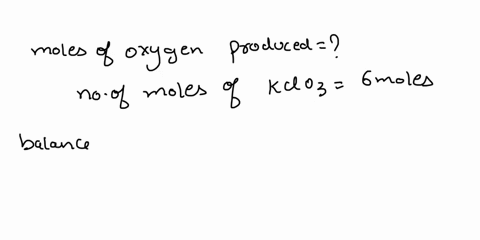 moles of oxygen produced = ?
no. of moles of KClO3 = 6 moles
balance